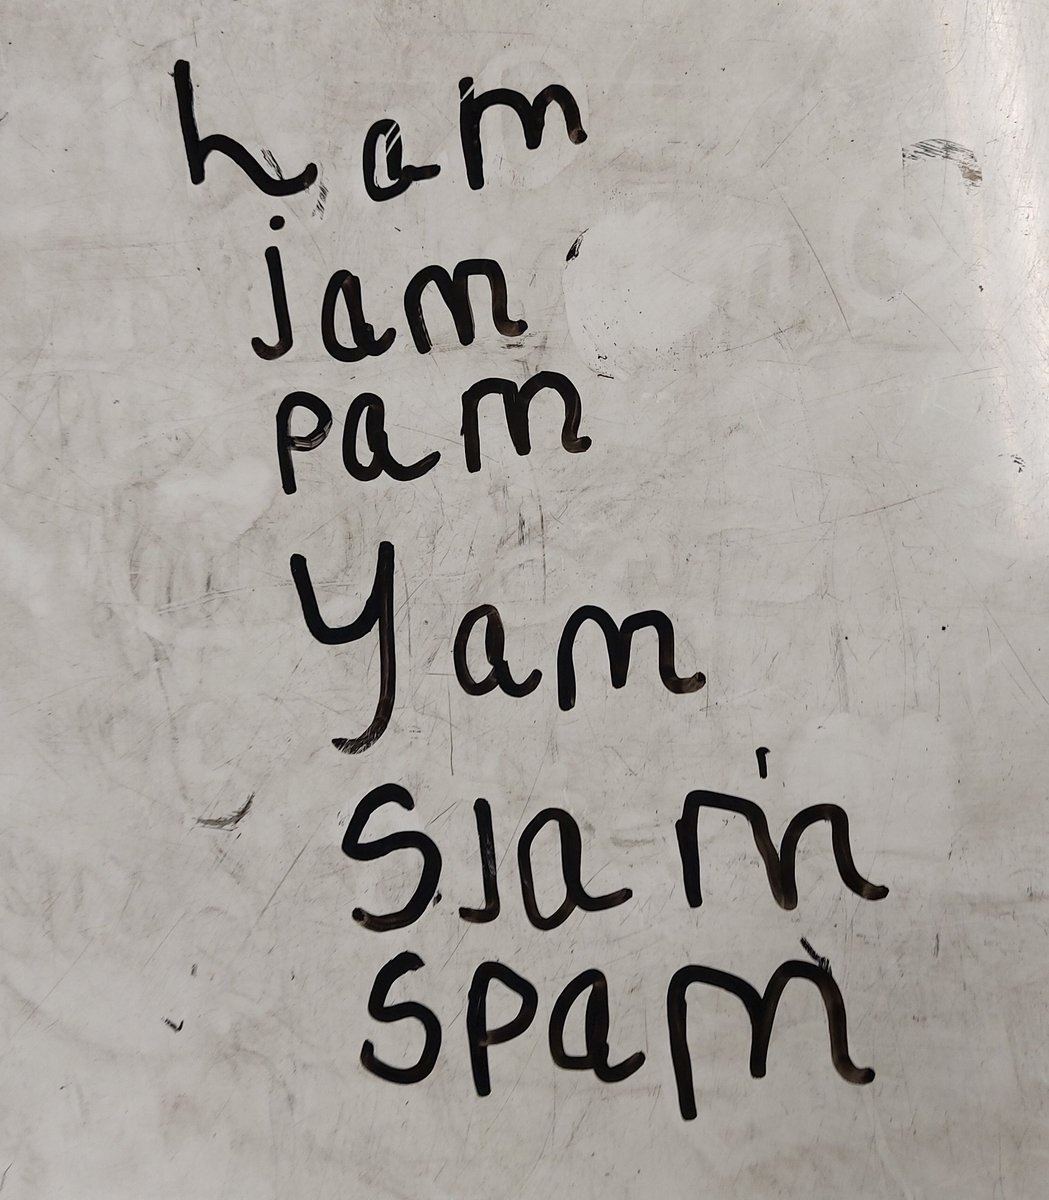 ham
jam
pam
yam
slam
spam